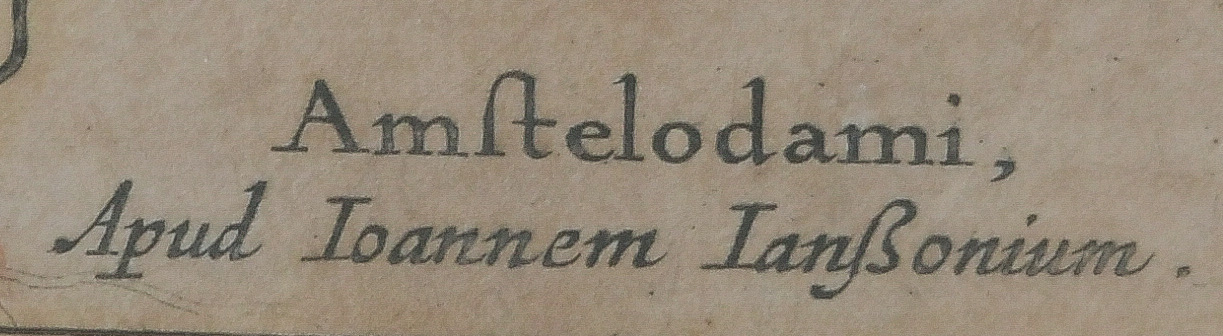 Amſtelodami,
Apud Ioannem Ianßonium.